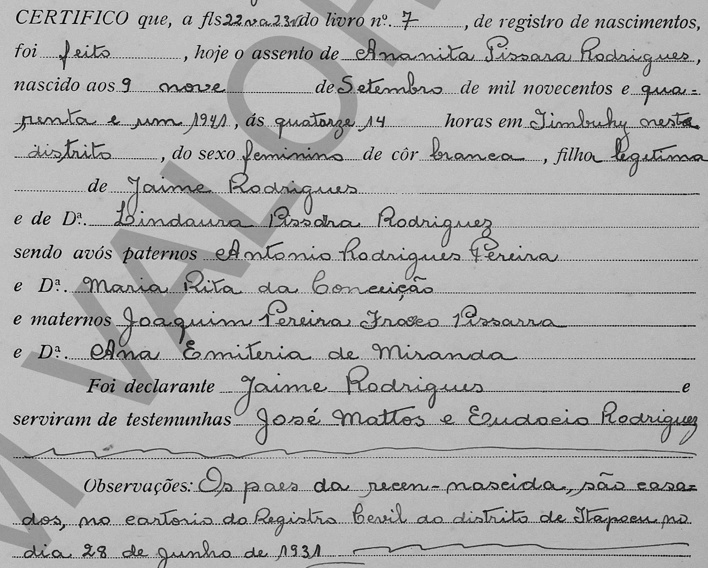 CERTIFICO que, a fls 22 va 23 vdo livro nº. 7, de registro de nascimentos,
foi feito, hoje o assento de Ananita Pissara Rodrigues,
nascido aos 9 nove de Setembro de mil novecentos e qua=
renta e um 1941, ás quatorze 14 horas em Timbuhy nesta
distrito, do sexo feminino de côr branca, filha legitima
de Jaime Rodrigues
e de Dª. Lindaura Pissara Rodriguez
sendo avós paternos Antonio Rodrigues Pereira
e Dª. Maria Rita da Conceição
e maternos Joaquim Pereira Franco Pissarra
e Dª. Ana Emiteria de Miranda
Foi declarante Jaime Rodrigues e
serviram de testemunhas José Mattos e Eudocio Rodriguez
Observações: Os paes da recen-nascida, são casa=
dos, no cartorio do Registro Cevil do distrito de Itapocu no
dia 28 de Junho de 1931
M VALOR